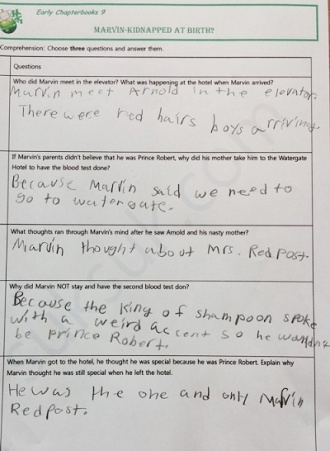 Early Chapterbooks 9
MARVIN-KIDNAPPED AT BIRTH?
Comprehension: Choose three questions and answer them.
Questions
Who did Marvin meet in the elevator? What was happening at the hotel when Marvin arrived?
Marvin meet Arnold in the elevator.
There were red hairs boys arriving.
If Marvin's parents didn't believe that he was Prince Robert, why did his mother take him to the Watergate
Hotel to have the blood test done?
Because Marvin said we need to
go to watergate.
What thoughts ran through Marvin's mind after he saw Arnold and his nasty mother?
Marvin thought about Mrs. Redpost.
Why did Marvin NOT stay and have the second blood test don?
Because the King of shampoon spoke
with a weird accent so he
be prince Robert.
When Marvin got to the hotel, he thought he was special because he was Prince Robert. Explain why
Marvin thought he was still special when he left the hotel.
He was the one and only Marvin
Redpost.